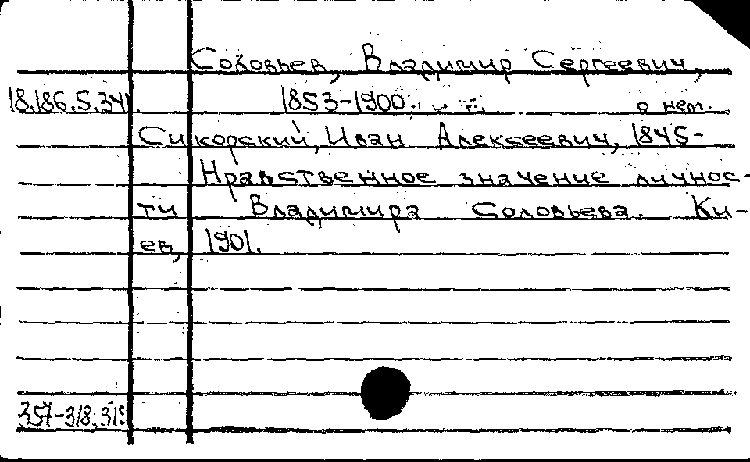 Соловьев, Владимир Сергеевич,
18.186.5.341. 1853-1900. о нем.
Сикорский, Иван Алексеевич, 1845-
Нравственное значение личнос-
ти Владимира Соловьева. Ки-
ев, 1901.
357-318.